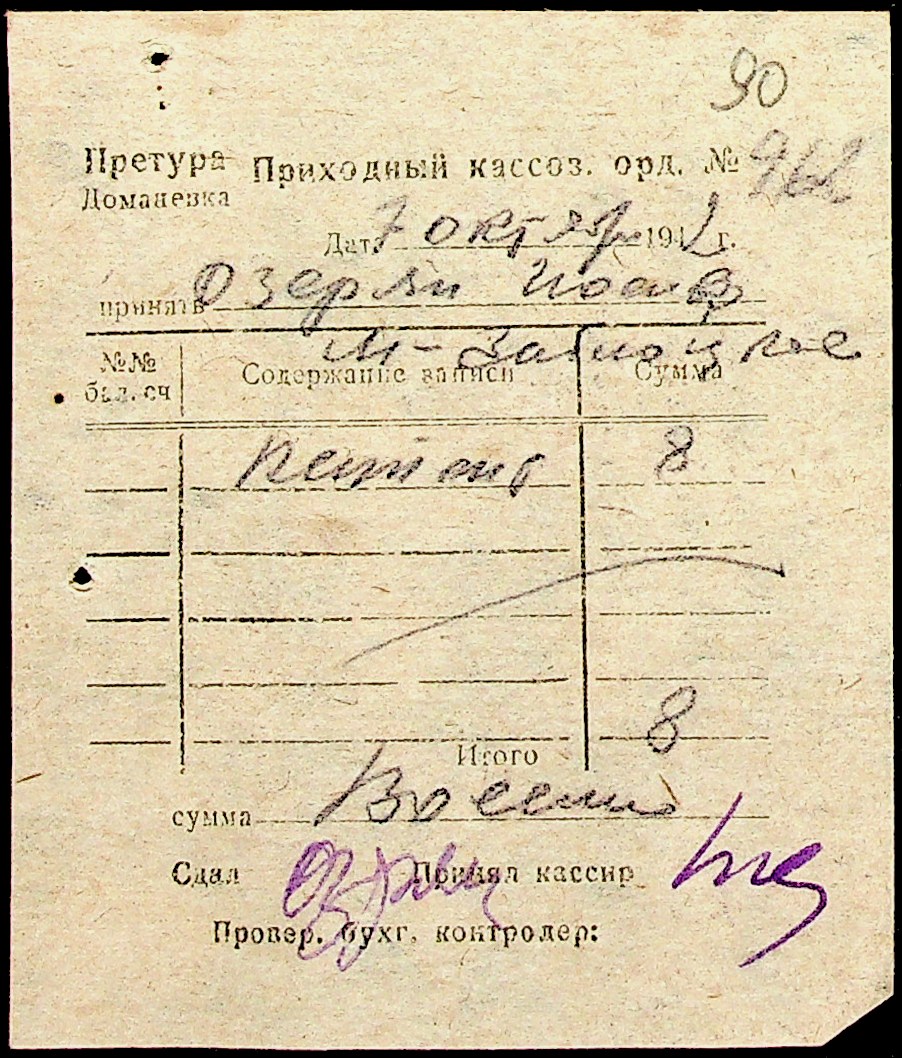 90
Претура Приходный кассоз. орд. № 962
Доманевка
Дата 7 октября 1942 г.
принять Озерян
№№ бал. сч
Содержание записи
Сумма
8
Итого 8
сумма Восемь
Сдал Принял кассир
Провер. бухг. контролер: